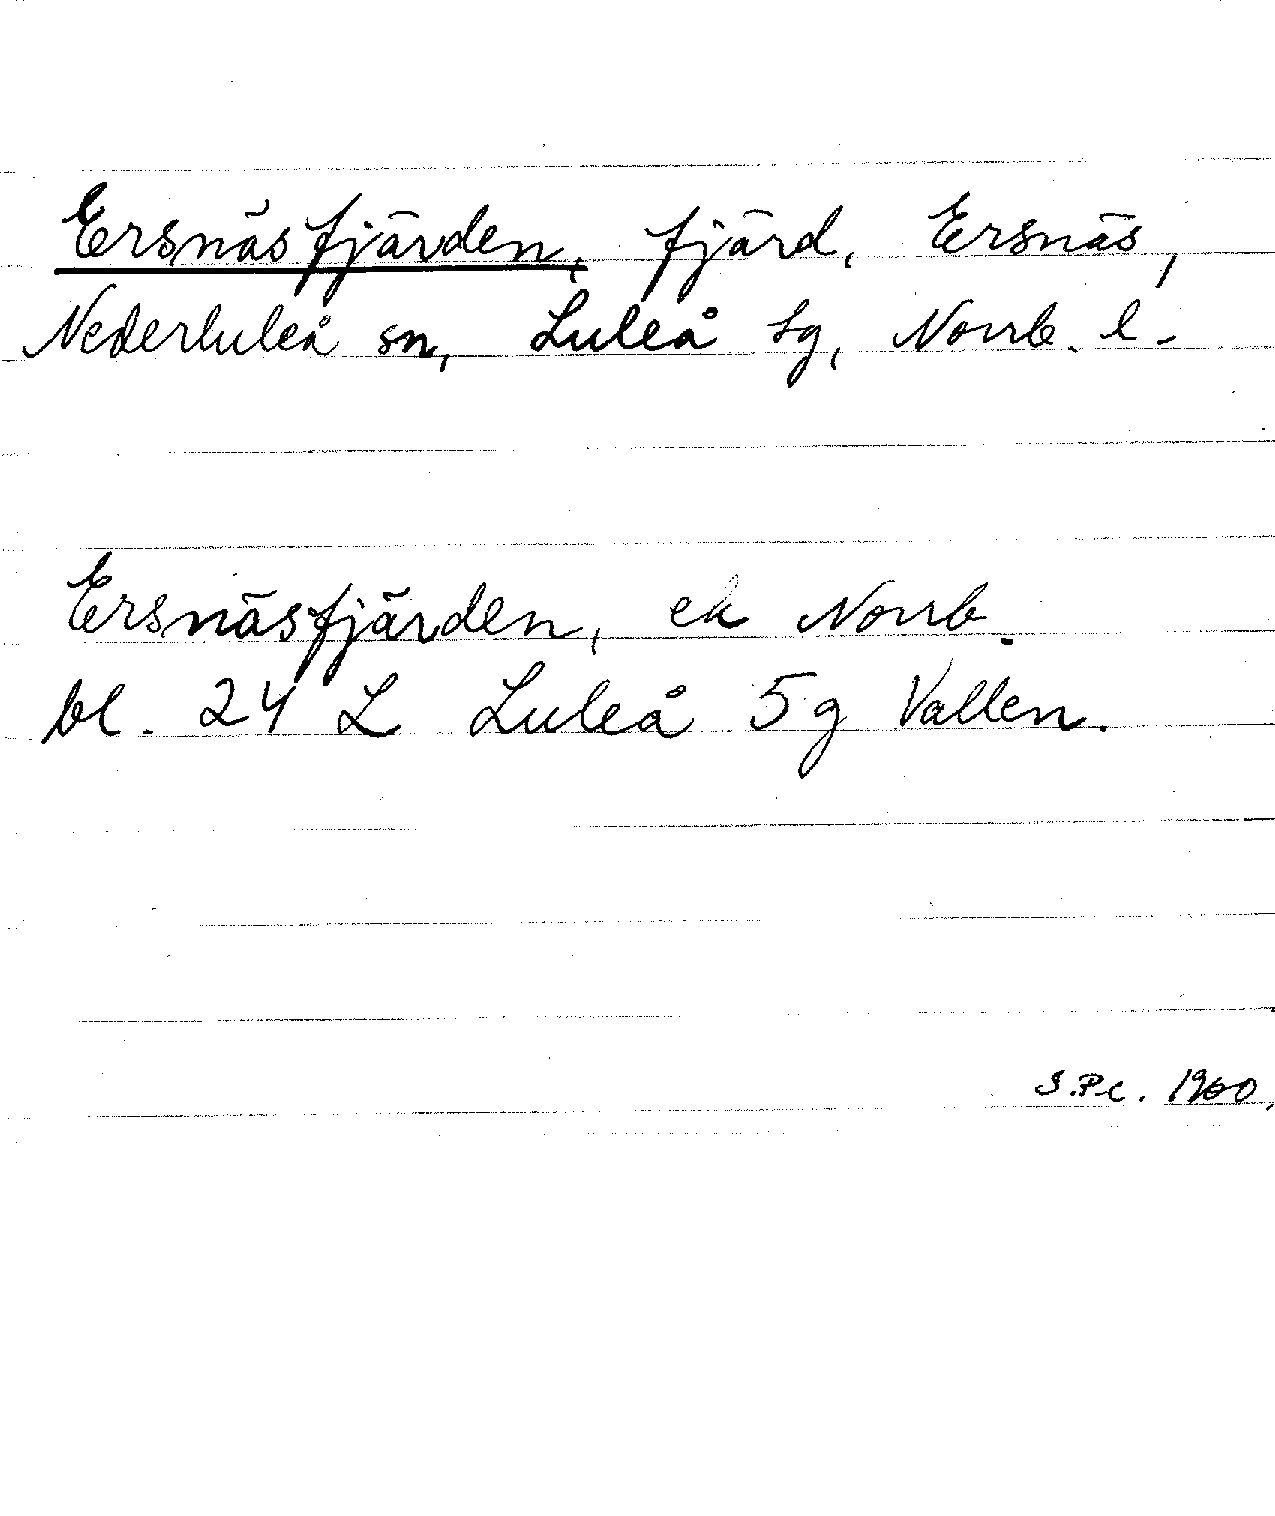 Ersnäsfjärden, fjärd, Ersnäs,
Nederluleå sn, Luleå tg, Norrb. l.
Ersnäsfjärden, ek Norrb.
bl. 24 L Luleå 5g Vallen.
S.P.C. 1960,